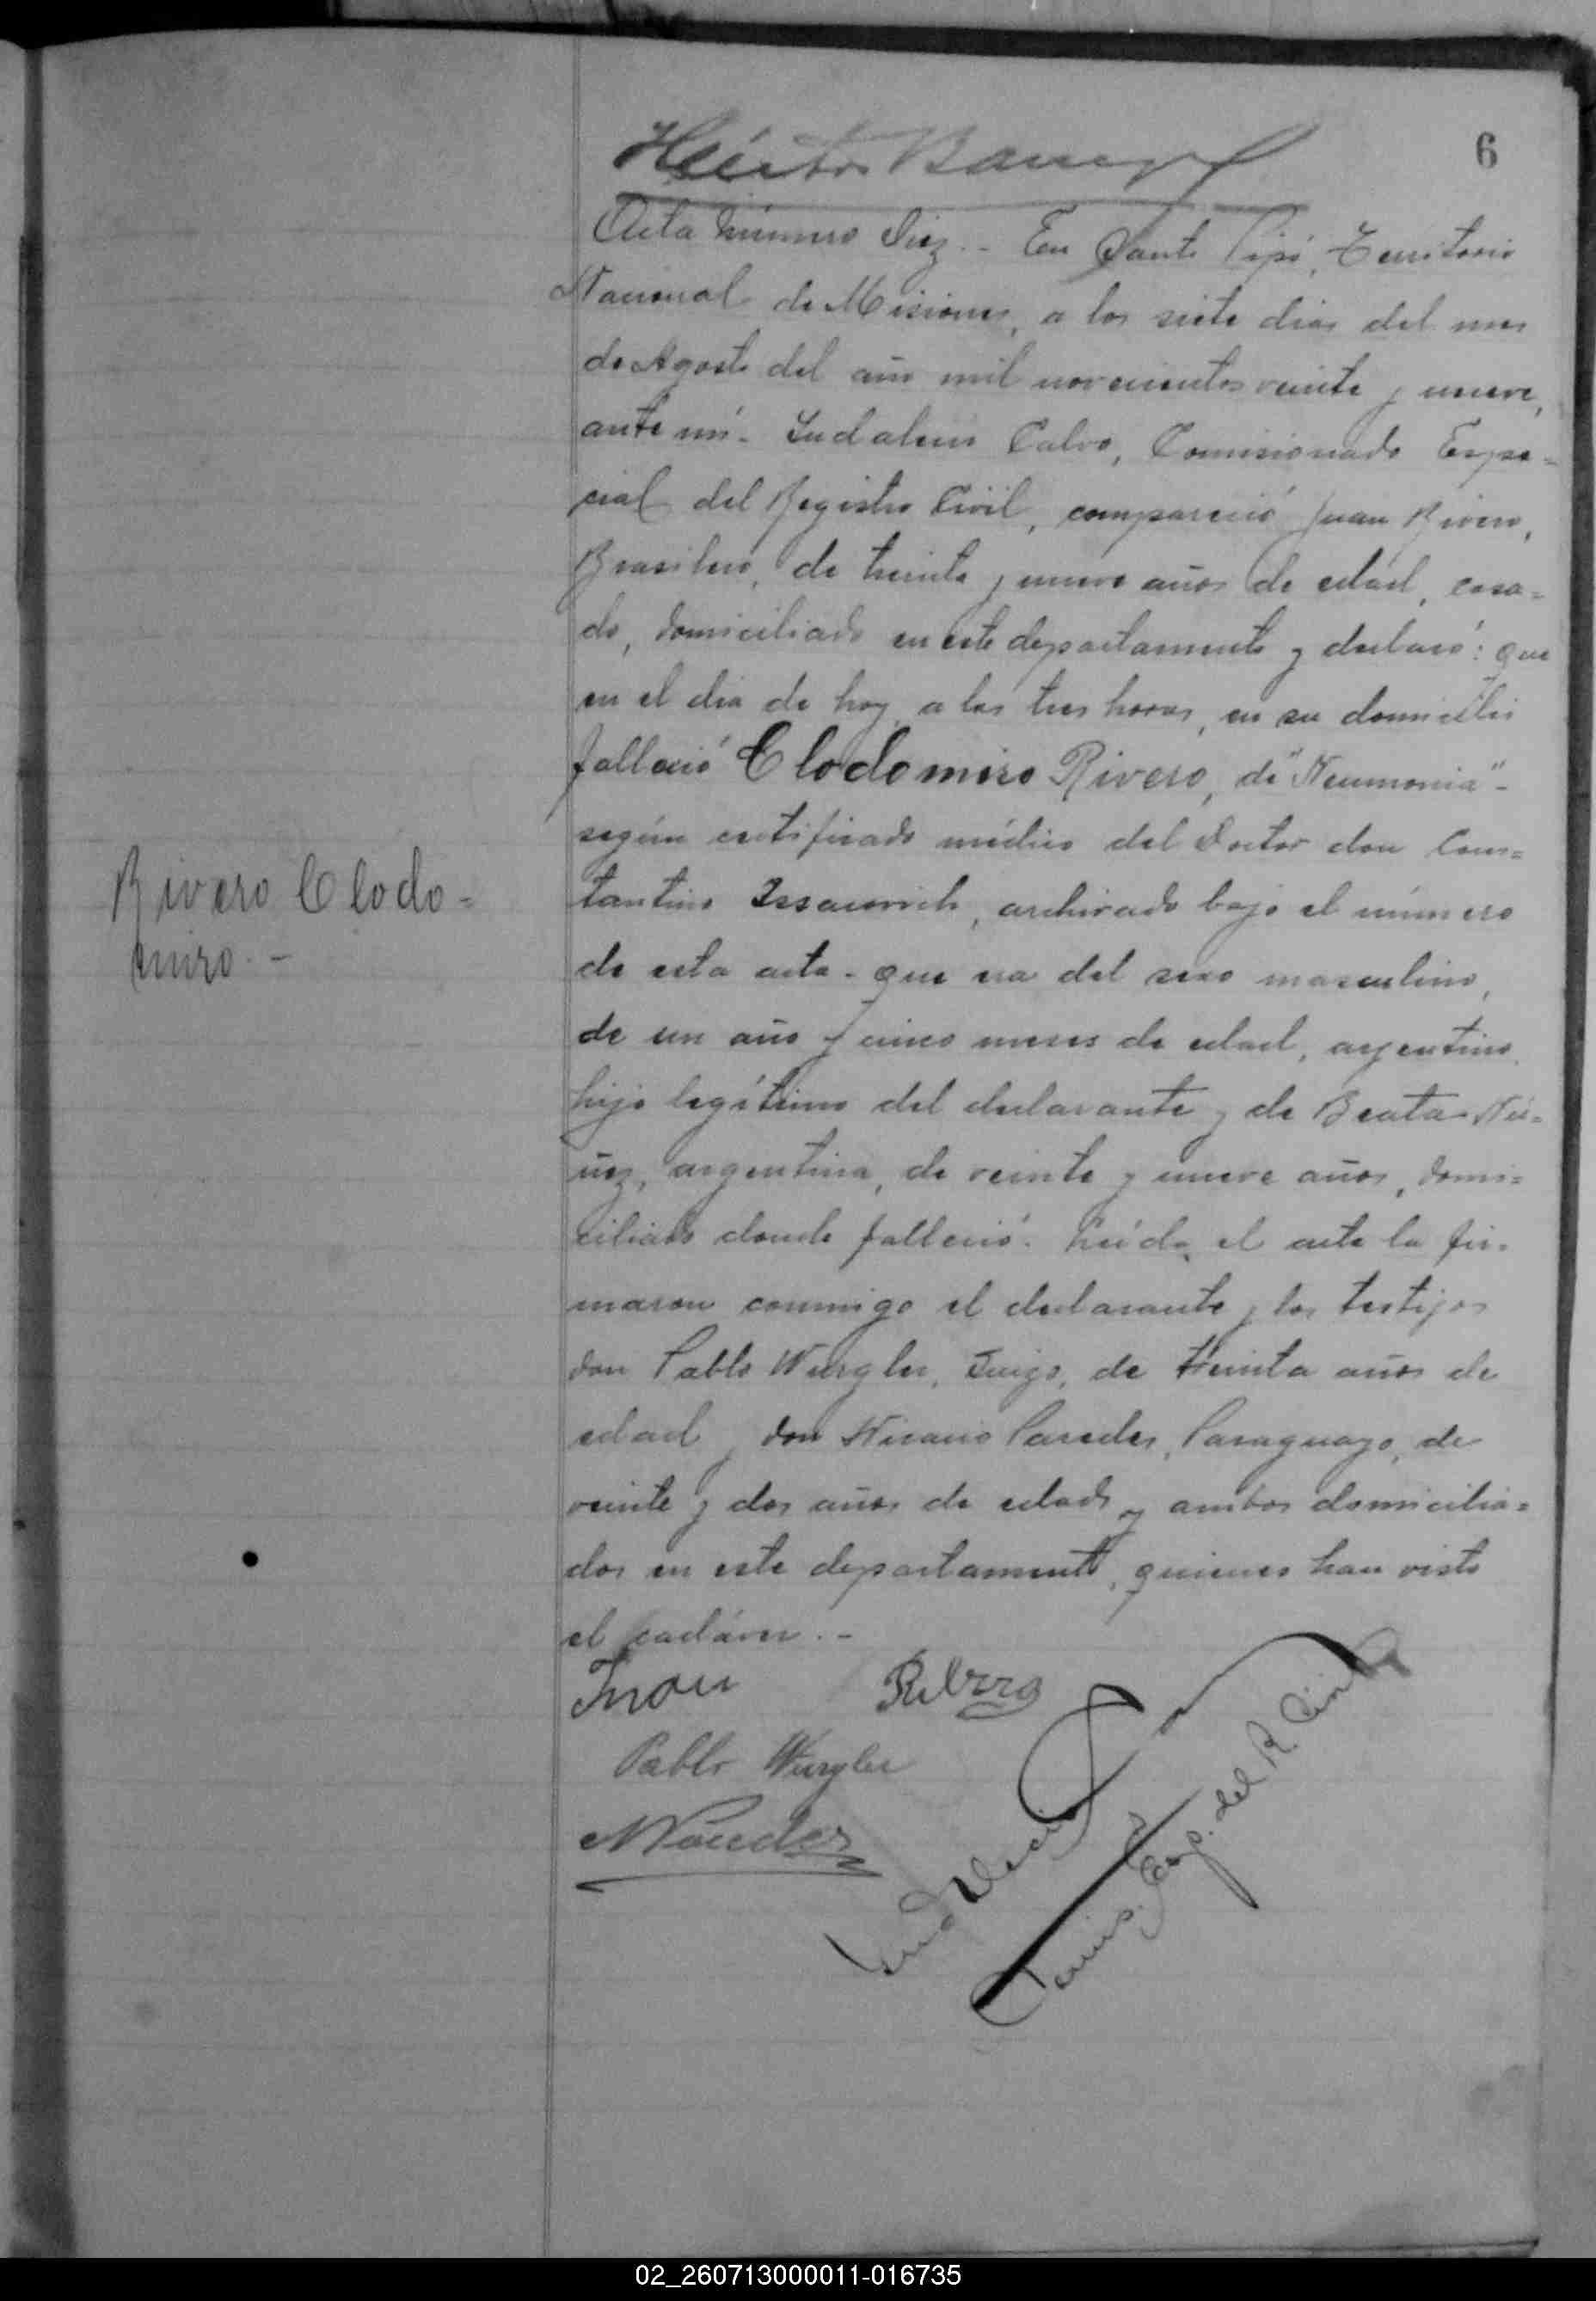 6
Héctor
Acta número Diez.- En Santo Pipó, Territorio
Nacional de Misiones, a los siete dias del mes
de Agosto del año mil novecientos veinte y nueve,
ante mí- Indalecio Calvo, Comisionado Espe=
cial del Registro Civil, compareció Juan Rivero,
Brasilero, de treinta y nueve años de edad, casa=
do, domiciliado en este departamento y declaró: que
en el dia de hoy, a las tres horas, en su domicilio
falleció Clodomiro Rivero, de "Neumonia"-
según certificado médico del Doctor don Cons=
tantino Issacovich, archivado bajo el número
de esta acta- que era del sexo masculino,
de un año y cinco meses de edad, argentino,
Rivero Clodo=
miro.-
hijo legítimo del declarante y de Beata Nú=
ñez, argentina, de veinte y nueve años, domi=
ciliado donde falleció. Leída el acta la fir=
maron conmigo el declarante y los testigos
don Pablo Wurgler, Suizo, de treinta años de
edad y don Nicasio Paredes, Paraguayo, de
veinte y dos años de edad y ambos domicilia=
dos en este departamento, quienes han visto
el cadáver.-
Juan
Pablo Wurgler
NParedes
Comis. Esp. del R. Civil
02_260713000011-016735